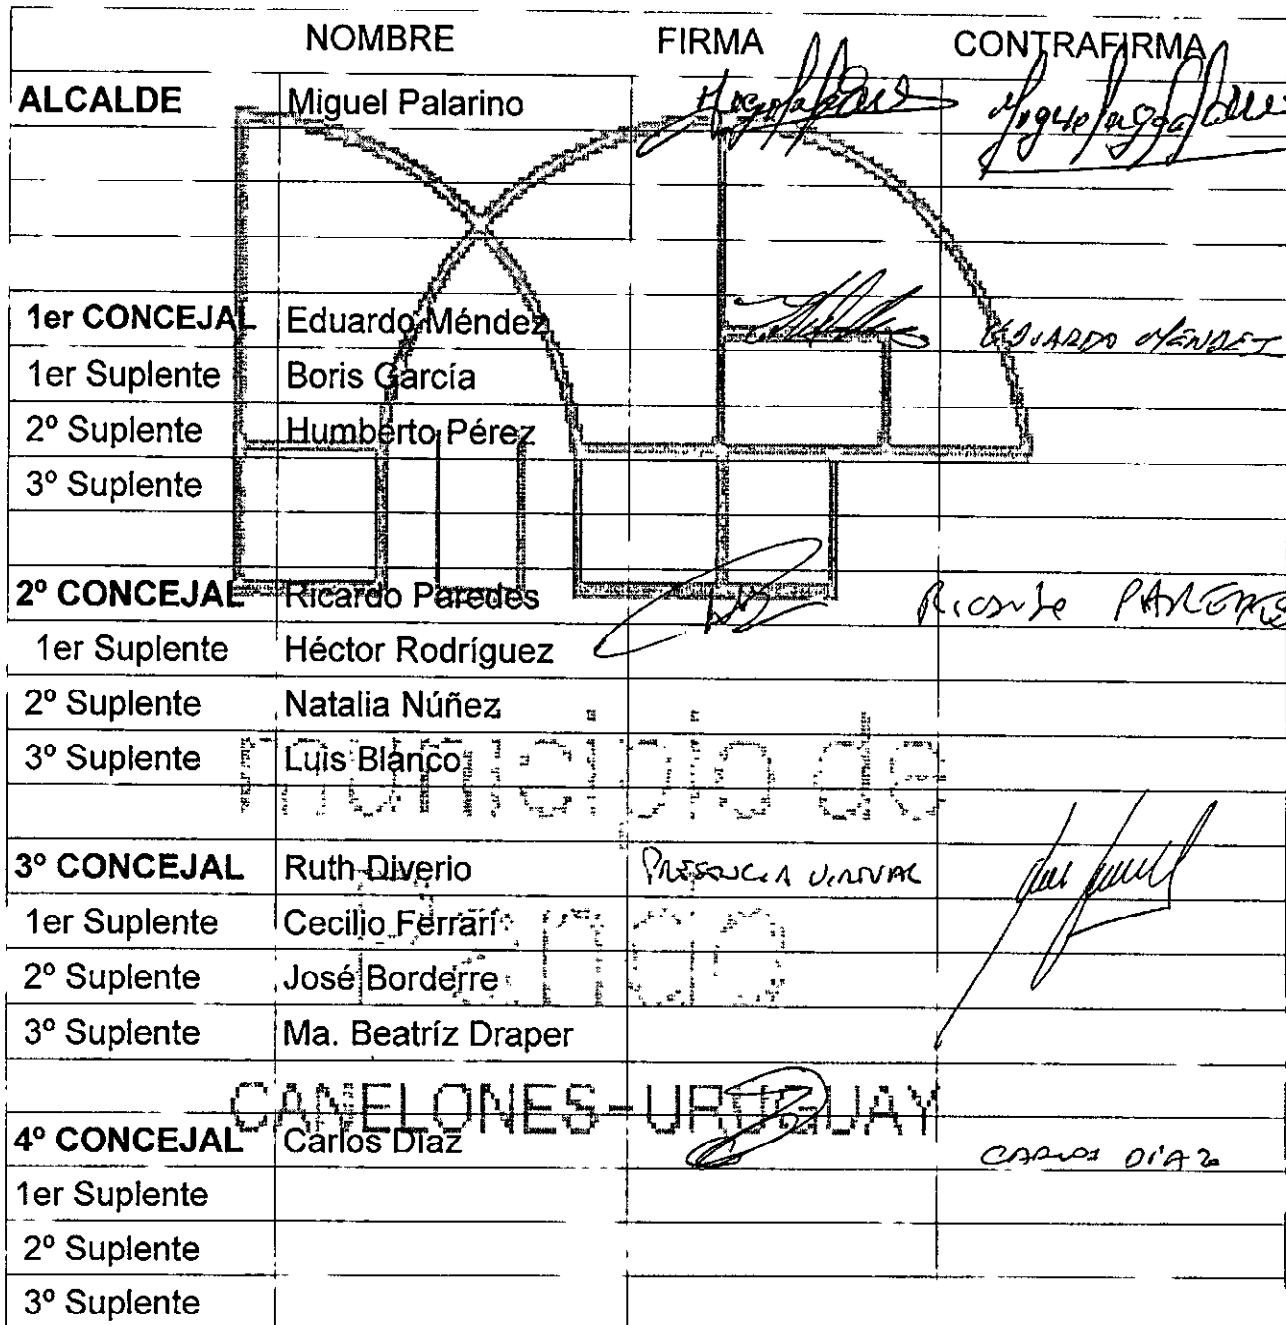 NOMBRE FIRMA CONTRAFIRMA
ALCALDE Miguel Palarino
1er CONCEJAL Eduardo Méndez EDUARDO MÉNDEZ
1er Suplente Boris García
2º Suplente Humberto Pérez
3º Suplente
2º CONCEJAL Ricardo Paredes Ricardo PAREDES
1er Suplente Héctor Rodríguez
2º Suplente Natalia Núñez
3º Suplente Luis Blanco
municipio de
3º CONCEJAL Ruth Diverio PRESENCIA VIRTUAL
1er Suplente Cecilio Ferrari
Pando
2º Suplente José Borderre
3º Suplente Ma. Beatríz Draper
CANELONES-URUGUAY
4º CONCEJAL Carlos Díaz CARLOS DÍAZ
1er Suplente
2º Suplente
3º Suplente